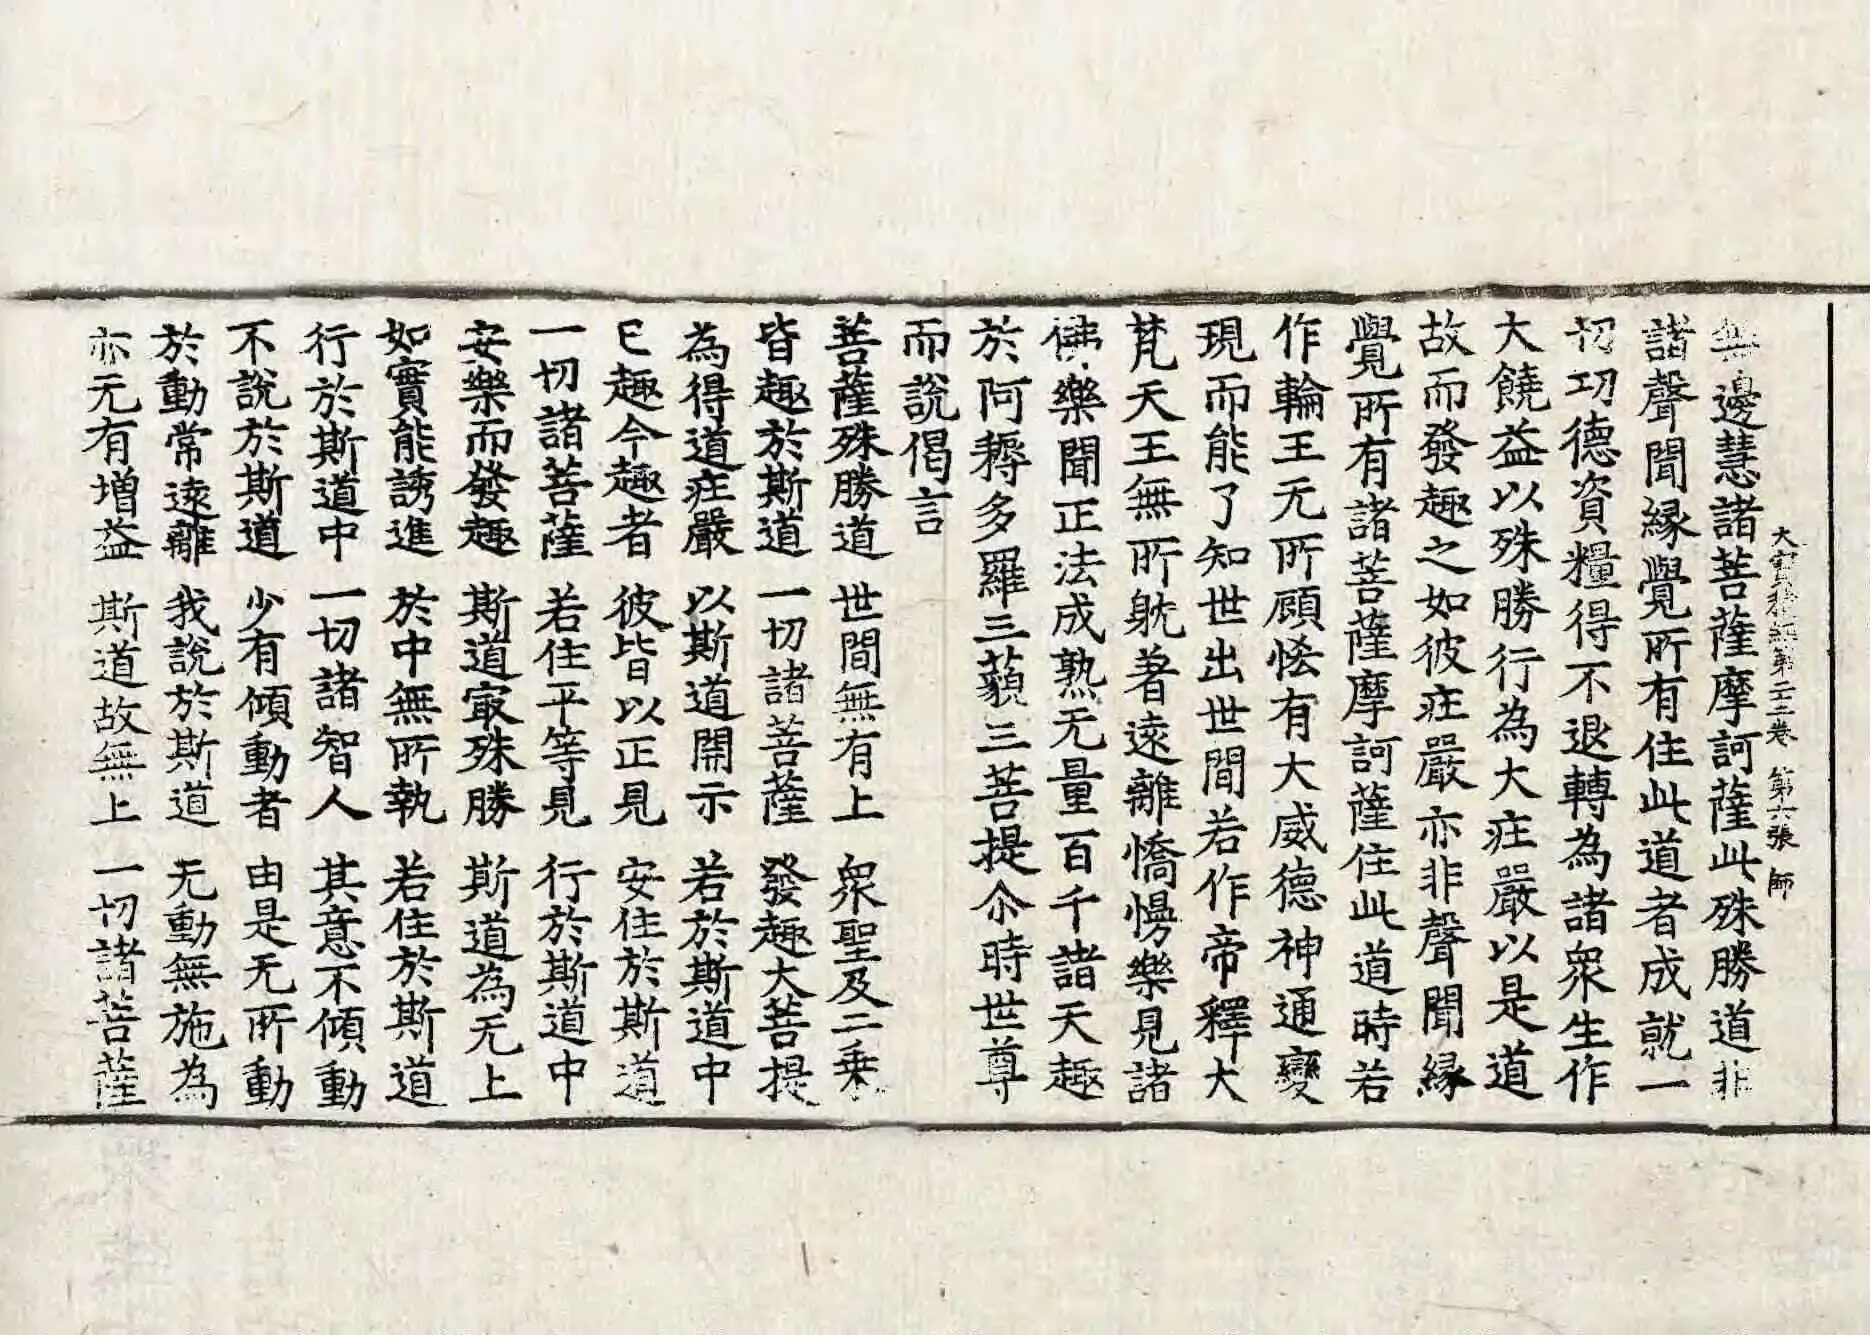 大寶積經第二十二卷 第六張 師
無邊慧諸菩薩摩訶薩此殊勝道非
諸聲聞緣覺所有住此道者成就一
切功德資糧得不退轉為諸衆生作
大饒益以殊勝行為大庄嚴以是道
故而發趣之如彼庄嚴亦非聲聞緣
覺所有諸菩薩摩訶薩住此道時若
作輪王无所顧悋有大威德神通變
現而能了知世出世間若作帝釋大
梵天王無所躭著遠離憍慢樂見諸
佛樂聞正法成熟无量百千諸天趣
於阿耨多羅三藐三菩提尒時世尊
而說偈言
菩薩殊勝道 世間無有上 衆聖及二乘
皆趣於斯道 一切諸菩薩 發趣大菩提
為得道庄嚴 以斯道開示 若於斯道中
已趣今趣者 彼皆以正見 安住於斯道
一切諸菩薩 若住平等見 行於斯道中
安樂而發趣 斯道㝡殊勝 斯道為无上
如實能誘進 於中無所執 若住於斯道
行於斯道中 一切諸智人 其意不傾動
不說於斯道 少有傾動者 由是无所動
於動常遠離 我說於斯道 无動無施為
亦无有增益 斯道故無上 一切諸菩薩